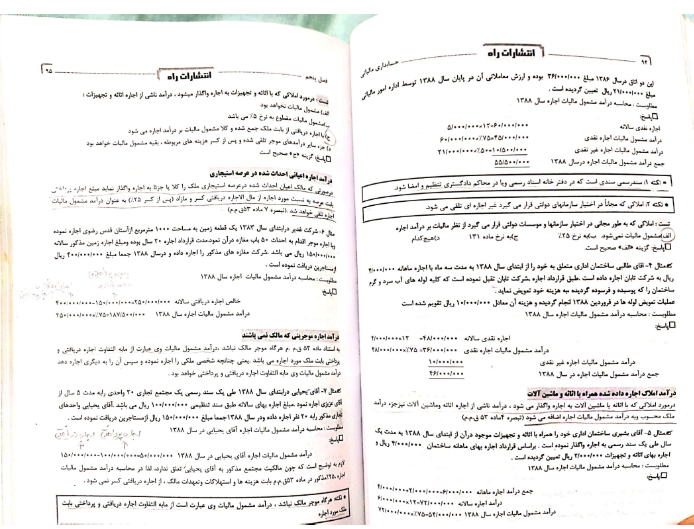 ۹۴
انتشارات راه
حسابداری مالیاتی
این دو اتاق درسال ۱۳۸۶ مبلغ ۳۶/۰۰۰/۰۰۰ بوده و ارزش معاملاتی آن در پایان سال ۱۳۸۸ توسط اداره امور مالیاتی
مبلغ ۲۱/۰۰۰/۰۰۰ ریال تعیین گردیده است .
مطلوبست : محاسبه درآمد مشمول مالیات اجاره سال ۱۳۸۸
پاسخ:
اجاره نقدی سالانه ۵/۰۰۰/۰۰۰×۱۲=۶۰/۰۰۰/۰۰۰
درآمد مشمول مالیات اجاره نقدی
درآمد مشمول مالیات اجاره غیر نقدی
جمع درآمد مشمول مالیات اجاره درسال ۱۳۸۸ ۵۵/۵۰۰/۰۰۰
نکته ۱: سندرسمی سندی است که در دفتر خانه اسناد رسمی ویا در محاکم دادگستری تنظیم و امضا شود.
نکته ۲: املاکی که مجاناً در اختیار سازمانهای دولتی قرار می گیرد غیر اجاره ای تلقی می شود.
تست : املاکی که به طور مجانی در اختیار سازمانها و موسسات دولتی قرار می گیرد از نظر مالیات بر درآمد اجاره
الف)مشمول مالیات نمی‌شود. ب)به نرخ ۲۵٪ ج)به نرخ ماده ۱۳۱ د)هیچکدام
پاسخ: گزینه «الف» صحیح است
مثال ۴- آقای طالبی ساختمان اداری متعلق به خود را از ابتدای سال ۱۳۸۸ به مدت سه ماه با اجاره ماهانه ۴/۰۰۰/۰۰۰
ریال به شرکت تابان اجاره داده است .طبق قرارداد اجاره ،شرکت تابان تقبل نموده است که کلیه لوله های آب سرد و گرم
ساختمان را که پوسیده و فرسوده گردیده به هزینه خود تعویض نماید.
عملیات تعویض لوله ها در فروردین ۱۳۸۸ انجام گردیده و هزینه آن معادل ۱۰/۰۰۰/۰۰۰ ریال تقویم شده است
پاسخ:
درآمد مشمول مالیات اجاره نقدی
درآمد مشمول مالیات اجاره غیر نقدی ۱۰/۰۰۰/۰۰۰
جمع درآمد مشمول مالیات اجاره در سال ۱۳۸۸ ۴۶/۰۰۰/۰۰۰
درآمد املاک اجاره داده شده همراه با اثاثه و ماشین آلات
درمورد املاکی که با اثاثه یا ماشین آلات به اجاره واگذار می شود ، درآمد ناشی از اجاره اثاثه وماشین آلات نیزجزء درآمد
ملک محسوب وبه درآمد مشمول مالیات اجاره اضافه می شود (تبصره ۴ماده ۵۳ ق.م.م)
مثال ۵- آقای بشیری ساختمان اداری خود را همراه با اثاثه و تجهیزات موجود درآن از ابتدای سال ۱۳۸۸ به مدت یک
سال طی یک سند رسمی به اجاره واگذار نموده است . براساس قرارداد اجاره بهای ماهانه ساختمان ۴/۰۰۰/۰۰۰ ریال و
اجاره بهای اثاثه و تجهیزات ۲/۰۰۰/۰۰۰ ریال تعیین گردیده است .
مطلوبست : محاسبه درآمد مشمول مالیات اجاره سال ۱۳۸۸
پاسخ:
جمع درآمد اجاره ماهانه ۴/۰۰۰/۰۰۰+۲/۰۰۰/۰۰۰=۶/۰۰۰/۰۰۰
درآمد اجاره سالانه ۶/۰۰۰/۰۰۰×۱۲=۷۲/۰۰۰/۰۰۰
درآمد مشمول مالیات اجاره سال ۱۳۸۸
فصل پنجم
انتشارات راه
۹۵
تست : درمورد املاکی که با اثاثه و تجهیزات به اجاره واگذار میشود ، درآمد ناشی از اجاره اثاثه و تجهیزات :
الف) مشمول مالیات نخواهد بود
ب)مشمول مالیات مقطوع به نرخ ۵٪ می باشد
ج)با اجاره دریافتی از بابت ملک جمع شده و کلا مشمول مالیات بر درآمد اجاره می شود
د) جزء سایر درآمدهای موجر تلقی شده و پس از کسر هزینه های مربوطه ، بقیه مشمول مالیات خواهد بود
پاسخ: گزینه «ج» صحیح است
درآمد اجاره اعیانی احداث شده در عرصه استیجاری
درصورتی که مالک اعیان احداث شده درعرصه استیجاری ملک را کلا یا جزئا به اجاره واگذار نماید مبلغ اجاره پرداختی
بابت عرصه به نسبت مورد اجاره از مال الاجاره دریافتی کسر و مازاد (پس از کسر ۲۵٪) به عنوان درآمد مشمول مالیات
اجاره تلقی خواهد شد (تبصره ۷ ماده ۵۳ق.م.م)
مثال ۶- شرکت غدیر درابتدای سال ۱۳۸۳ یک قطعه زمین به مساحت ۱۰۰۰ مترمربع ازآستان قدس رضوی اجاره نموده
۱۵۰/۰۰۰/۰۰۰ ریال می باشد .شرکت مغازه های مذکور را اجاره داده و درسال ۱۳۸۸ جمعا مبلغ ۴۰۰/۰۰۰/۰۰۰ ریال
ازمستاجرین دریافت نموده است .
مطلوبست : محاسبه درآمد مشمول مالیات اجاره سال ۱۳۸۸
پاسخ:
خالص اجاره دریافتی سالانه ۴۰۰/۰۰۰/۰۰۰-۱۵۰/۰۰۰/۰۰۰=۲۵۰/۰۰۰/۰۰۰
درآمد مشمول مالیات اجاره سال ۱۳۸۸ ۲۵۰/۰۰۰/۰۰۰×۷۵٪=۱۸۷/۵۰۰/۰۰۰
درآمد اجاره موجرینی که مالک نمی باشند
به استناد ماده ۵۳ ق.م.م هرگاه موجر مالک نباشد ،درآمد مشمول مالیات وی عبارت از مابه التفاوت اجاره دریافتی و
پرداختی بابت ملک مورد اجاره می باشد .یعنی چنانچه شخصی ملکی را اجاره نموده و سپس آن را به دیگری اجاره دهد
درآمد مشمول مالیات وی مابه التفاوت اجاره دریافتی و پرداختی خواهد بود.
مثال ۷- آقای یحیایی درابتدای سال ۱۳۸۸ طی یک سند رسمی یک مجتمع تجاری ۲۰ واحدی رابه مدت ۵ سال از
آقای عزیزی اجاره نمود.مبلغ اجاره بهای سالانه طبق سند تنظیمی ۱۰۰/۰۰۰/۰۰۰ ریال می باشد .آقای یحیایی واحدهای
تجاری مذکور رابه ۲۰ نفر اجاره داده ودر سال ۱۳۸۸ جمعا مبلغ ۱۵۰/۰۰۰/۰۰۰ ریال ازمستاجرین دریافت نموده است .
مطلوبست : محاسبه درآمد مشمول مالیات اجاره آقای یحیایی در سال ۱۳۸۸
پاسخ:
درآمد مشمول مالیات اجاره آقای یحیایی در سال ۱۳۸۸ ۱۵۰/۰۰۰/۰۰۰-۱۰۰/۰۰۰/۰۰۰=۵۰/۰۰۰/۰۰۰
لازم به توضیح است که چون مالکیت مجتمع مذکور به آقای یحیایی تعلق ندارد، لذا در محاسبه درآمد مشمول مالیات
نکته :هرگاه موجر مالک نباشد ، درآمد مشمول مالیات وی عبارت است از مابه التفاوت اجاره دریافتی و پرداختی بابت
ملک مورد اجاره